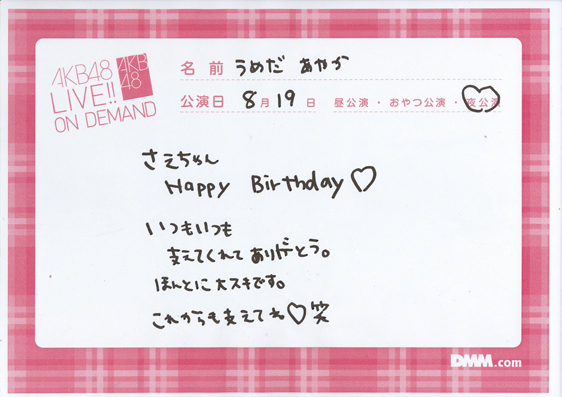 AKB48
LIVE!!
ON DEMAND
AKB
48
名 前 うめだ あやか
公演日 8月19日 昼公演・おやつ公演・夜公演
さえちゃん
Happy Birthday♡
いつもいつも
支えてくれてありがとう。
ほんとに大スキです。
これからも支えてね♡笑
DMM.com